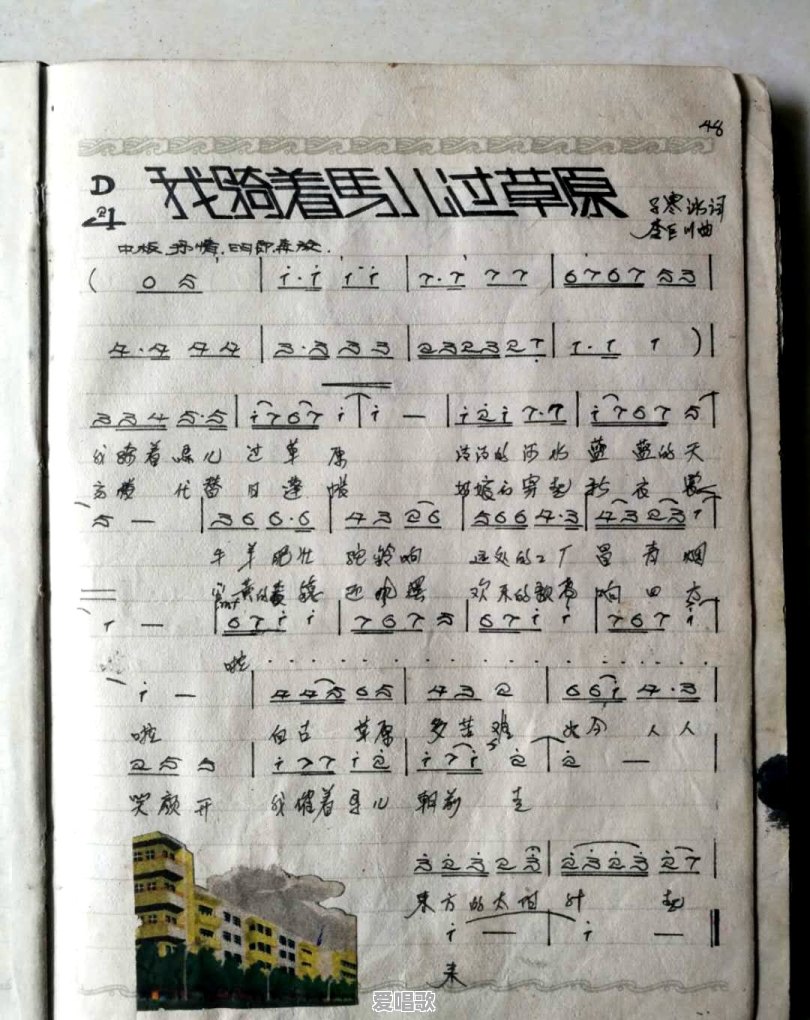 48
D 2/4 我骑着馬儿过草原
李巨川曲
中板 抒情
( 0 5 | i·i i i | 7·7 7 7 | 6767 53 |
4·4 44 | 3·3 33 | 232327 | 1·1 1 ) |
334 5·5 | i767 i | i — | i2i 7·7 | i767 5 |
我骑着馬儿 过草原 清清的河水 蓝蓝的天
代替
5 — | 36 6·6 | 43 26 | 566 4·3 | 4323 1 |
牛羊肥壮 驼铃响 远处的工厂冒青烟
欢乐的歌声响四方
1 — | 67i i | 767 5 | 67i i | 767 i |
啦
i — | 445 65 | 43 2 | 66i 4·3 |
啦 草原 多苦难 如今 人人
255 | i77 i2 | i7i 2 | 2 — |
笑颜开 我催着馬儿 朝前走
32323 | 2323 27 |
东方的太阳升起
i — | i — ‖
来
爱唱歌